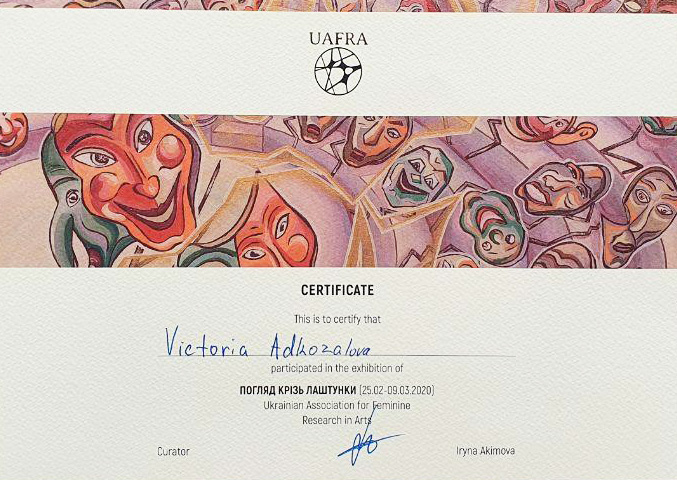 UAFRA
CERTIFICATE
This is to certify that
Victoria Adkozalova
participated in the exhibition of
ПОГЛЯД КРІЗЬ ЛАШТУНКИ (25.02-09.03.2020)
Ukrainian Association for Feminine
Research in Arts
Curator
Iryna Akimova